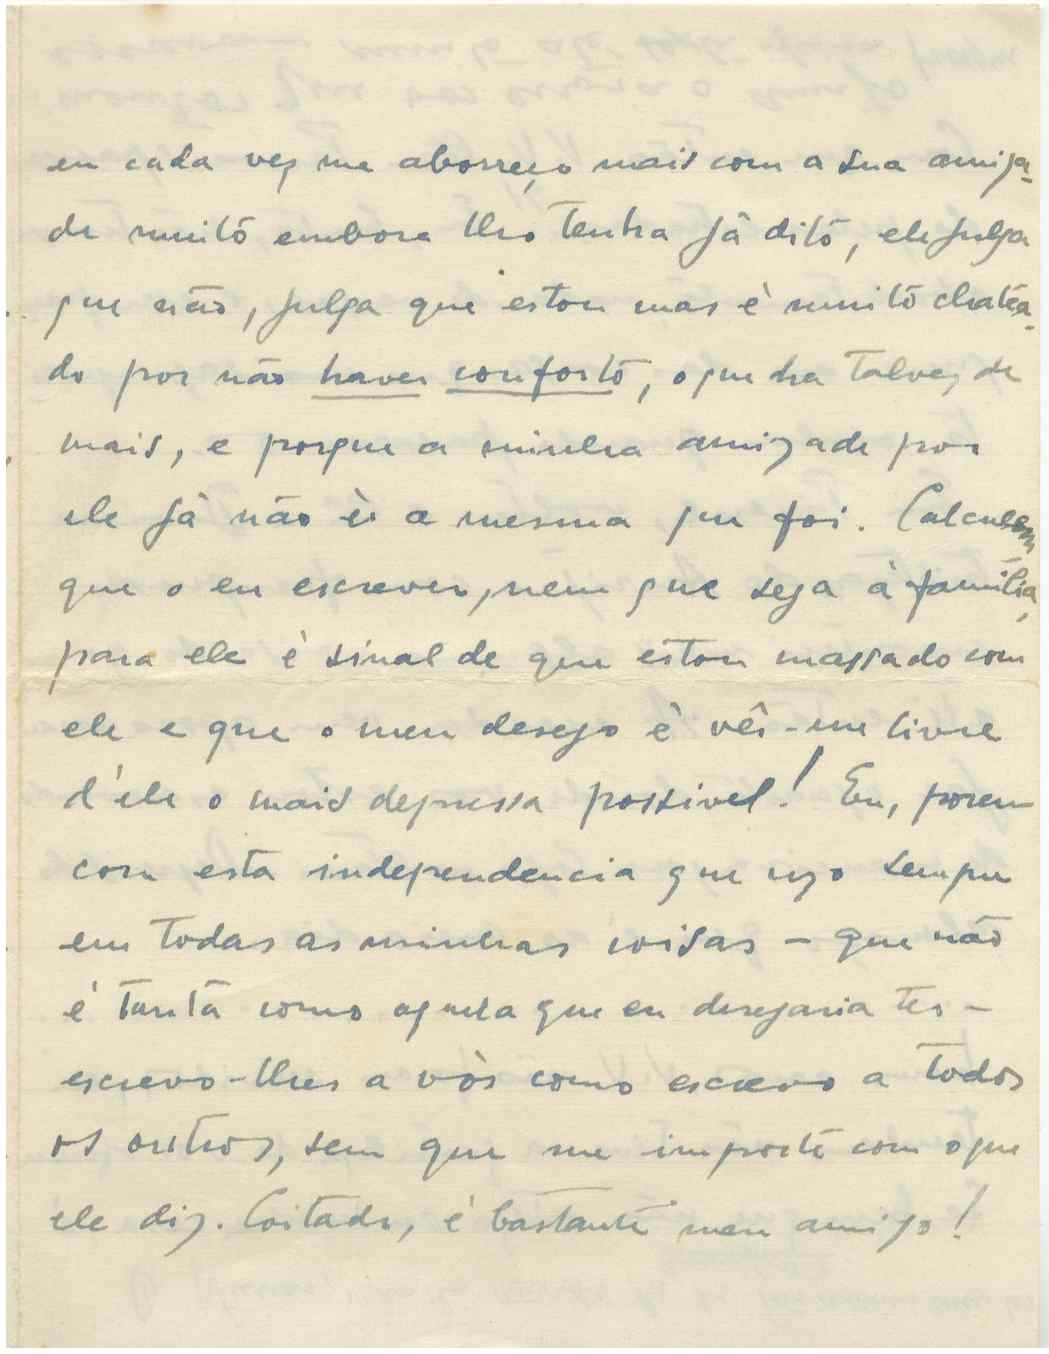 eu cada vez me aborreço mais com a sua amiza-
de muitō embora lho tenha já ditō, ele julga
que não, julga que estou mas é muitō chatea-
do por não haver confortō, o que ha talvez de
mais, e porque a minha amizade por
ele já não é a mesma que foi. Calculem
que o eu escrever, nem que seja à família,
para ele é sinal de que estou massado com
ele e que o meu desejo é vêr-me livre
d'ele o mais depressa possivel! Eu, porem
com esta independencia que uzo sempre
em todas as minhas coisas - que não
é tanta como aquela que eu desejaria ter -
escrevo-lhes a vós como escrevo a todos
os outros, sem que me importe com o que
ele diz. Coitado, é bastante meu amigo!